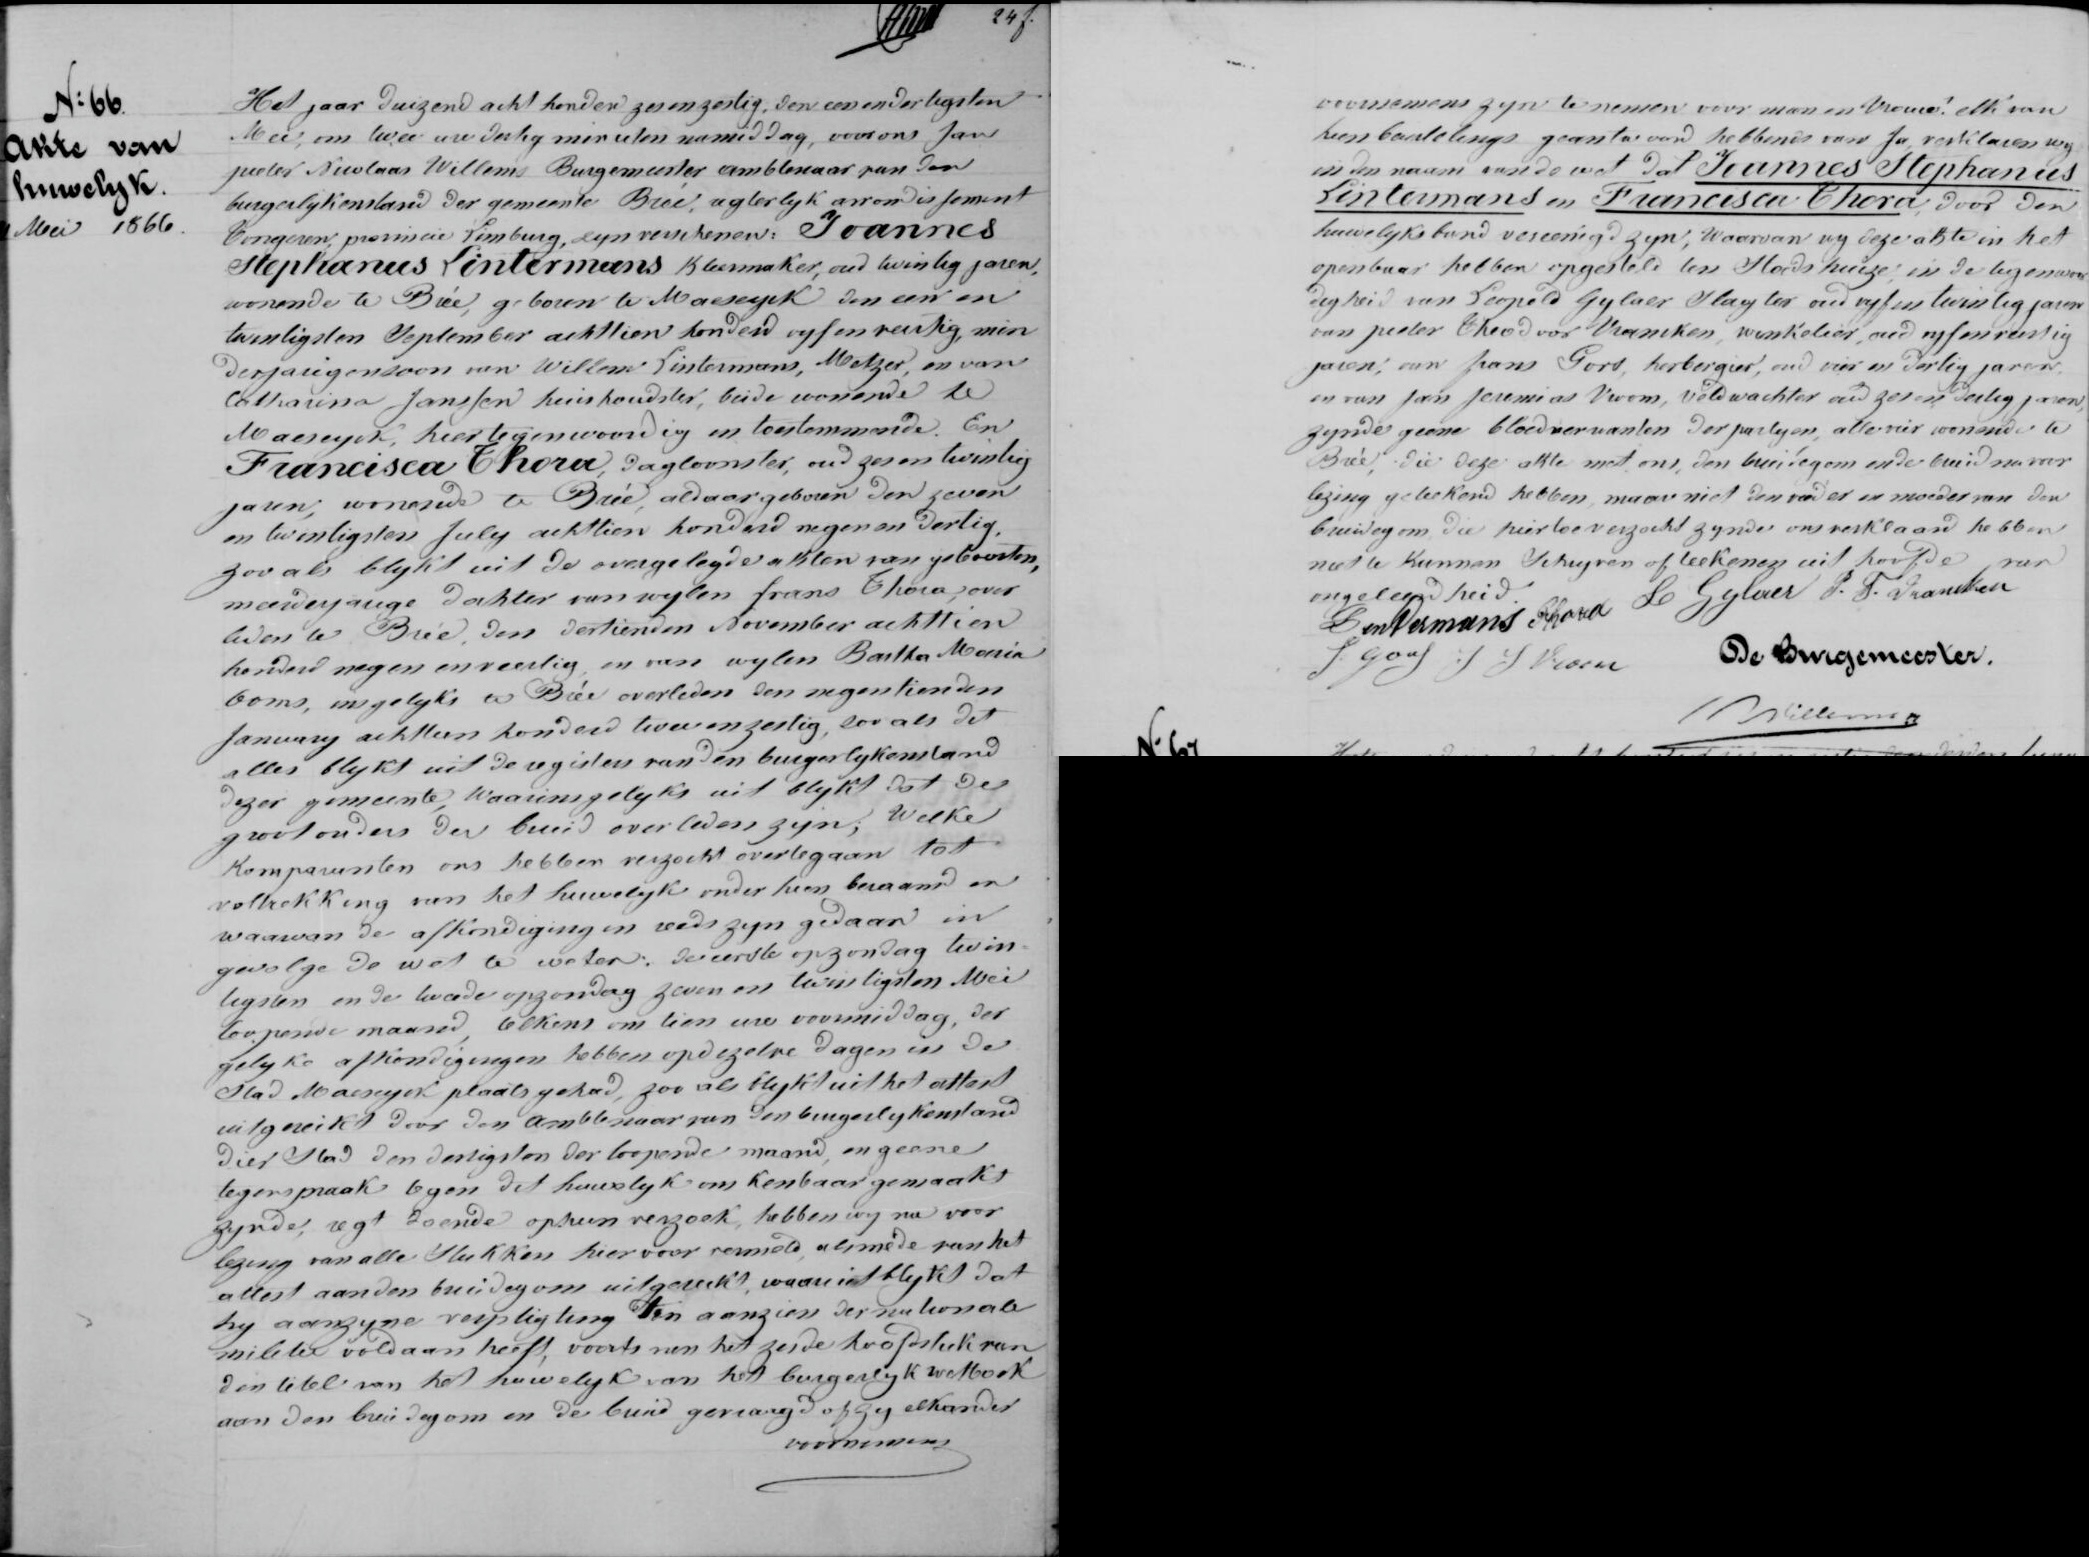 24 f.
N: 66.
Akte van
huwelyk.
Mei 1866.
Het jaar duizend acht honderd zesenzestig, den eenendertigsten
Mei, om twee ure dertig minuten namiddag, voor ons Jan
pieter Nicolaas Willems Burgemeester ambtenaar van den
burgerlykenstand der gemeente Brée, regterlyk arrondissement
Tongeren, provincie Limburg, zyn verschenen: Joannes
Stephanus Lintermans kleermaker, oud twintig jaren,
wonende te Brée, geboren te Maeseyck den een en
twintigsten September achttien honderd vyfenveertig, min
derjarigenzoon van Willem Lintermans, Metzer, en van
Catharina Janssen huishoudster, beide wonende te
Maeseyck, hier tegenwoordig en toestemmende. En
Francisca Thora, dagloonster, oud zesentwintig
jaren, wonende te Brée, aldaar geboren den zeven
en twintigsten July achttien honderd negenendertig,
zoo als blykt uit de overgelegde akten van geboorten,
meerderjarige dochter van wylen frans Thora, over
leden te Brée, den dertienden November achttien
honderd negen enveertig, en van wylen Bartha Maria
Cooms, insgelyks te Brée overleden den negentienden
January achttien honderd tweeenzestig, zoo als dit
alles blykt uit de registers van den burgerlykenstand
dezer gemeente, Waarinsgelyks uit blykt dat de
grootouders der bruid overleden zijn; Welke
Komparanten ons hebben verzocht overtegaan tot
voltrekking van het huwelyk onder hen beraamd en
waarvan de afkondigingen reeds zyn gedaan in
gevolge de wet te weten: de eerste op zondag twin-
tigsten en de tweede op zondag zeven en twintigsten Mei
loopende maand, telkens om tien ure voormiddag, der
gelyke afkondigingen hebben opdezelve dagen in de
Stad Maeseyck plaats gehad, zoo als blykt uit het attest
uitgereikt door den ambtenaar van den burgerlykenstand
dier Stad den dertigsten der loopende maand, en geene
tegenspraak tegen dit huwelyk ons kenbaar gemaakt
zynde, regt doende op hun verzoek, hebben wy na voor
lezing van alle Stukken hiervoor vermeld, alsmede van het
attest aan den bruidegom uitgereikt, waaruit blykt dat
hy aan zyne verpligting ten aanzien der nationale
militie voldaan heeft, voorts van het zesde hoofdstuk van
den titel van het huwelyk van het burgerlyk wetboek
aan den bruidegom en de bruid gevraegd of zy elkander
voornemens
voornemens zyn te nemen voor man en Vrouw? elk van
hen beurtelings geantwoord hebbende van Ja, verklaren wy
in den naam van de wet dat Joannes Stephanus
Lintermans en Francisca Thora, door den
huwelyksband vereenigd zyn, Waarvan wy deze akte in het
openbaar hebben opgesteld ten Stadshuize, in de tegenwoor
digheid van Leopold Gylaer Slagter oud vyfentwintig jaren
van pieter Theodoor Vrancken, winkelier, oud vyfenveertig
jaren, van frans Goos, herbergier, oud vier en dertig jaren,
en van Jan Jeremias Vroom, Veldwachter oud zesendertig jaren,
zynde geene bloedverwanten der partyen, alle vier wonende te
Brée, die deze akte met ons, den bruidegom ende bruid na voor
lezing geteekend hebben, maar niet den vader en moeder van den
bruidegom, die hiertoe verzocht zynde ons verklaard hebben
niet te kunnen Schryven of teekenen uit hoofde van
ongeleerdheid.
Lentermans Thora L Gylaer P. T. Vrancken
f. Goos J J Vroom
De Burgemeester.
Willems
N. 67